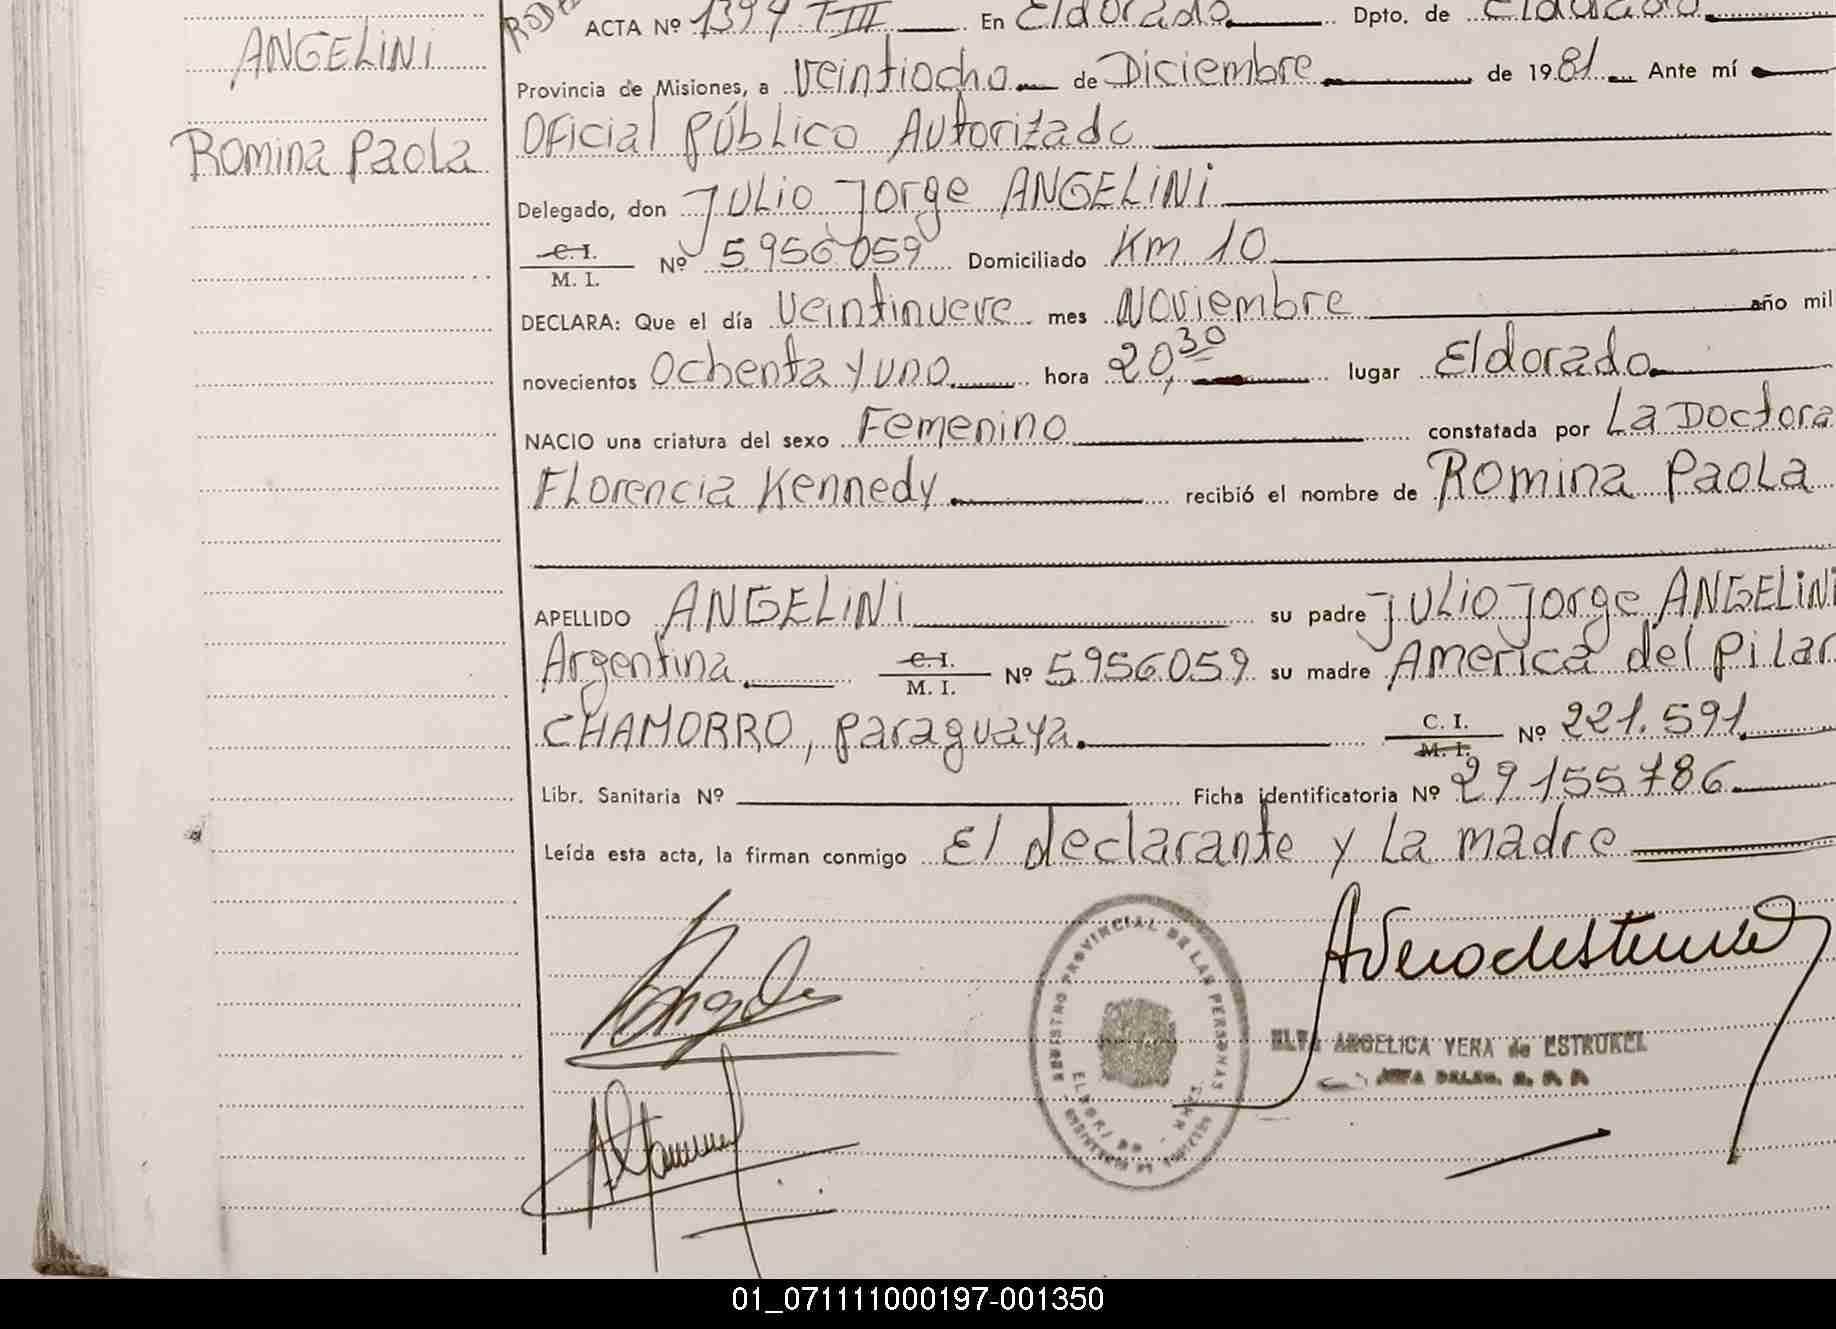 ANGELINI
Romina Paola
ACTA Nº 1394 T-III En Eldorado Dpto. de Eldorado
Provincia de Misiones, a veintiocho de Diciembre de 1981 Ante mí
Oficial Público Autorizado
Delegado, don Julio Jorge ANGELINI
C. I.
M. I. Nº 5.956.059 Domiciliado Km 10
DECLARA: Que el día veintinueve mes Noviembre año mil
novecientos ochenta y uno hora 20,30 lugar Eldorado
NACIO una criatura del sexo Femenino constatada por La Doctora
Florencia Kennedy recibió el nombre de Romina Paola
APELLIDO ANGELINI su padre Julio Jorge ANGELINI
Argentina C. I. M. I. Nº 5.956.059 su madre America del Pilar
CHAMORRO, paraguaya. C. I. M. I. Nº 221.591
Libr. Sanitaria Nº Ficha identificatoria Nº 29155786
Leída esta acta, la firman conmigo El declarante y La madre
REGISTRO PROVINCIAL DE LAS PERSONAS
ANGELICA VERA de ESTRUKEL
01_071111000197-001350